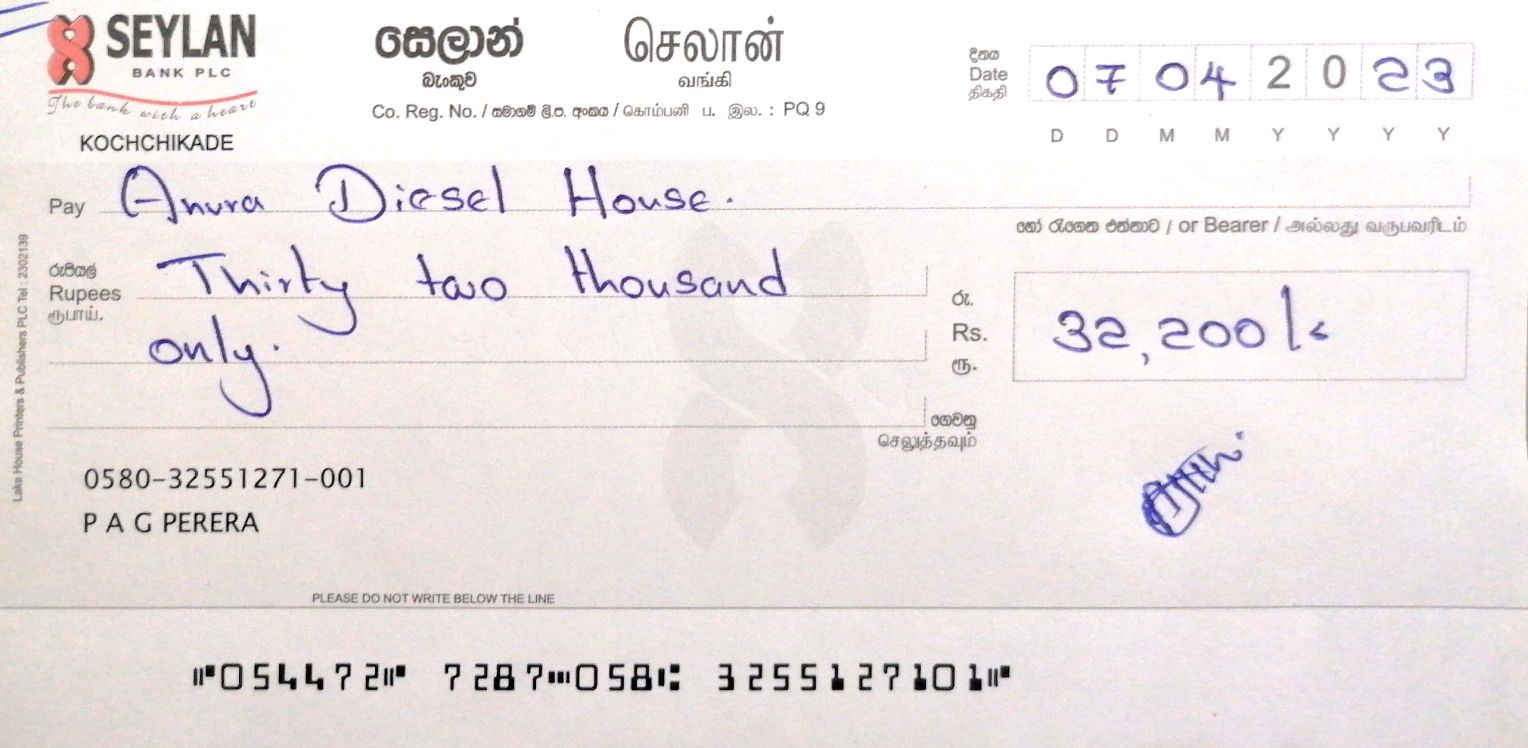 SEYLAN
BANK PLC
The bank with a heart
KOCHCHIKADE
සෙලාන් செலான்
බැංකුව வங்கி
Co. Reg. No. / සමාගම් ලි.ප. අංකය / கொம்பனி ப. இல. : PQ 9
දිනය
Date
திகதி
07 04 2023
D D M M Y Y Y Y
Pay Anura Diesel House.
හෝ රැගෙන එන්නාට / or Bearer / அல்லது வருபவரிடம்
රුපියල්
Rupees
ரூபாய்.
Thirty two thousand
only.
රු.
Rs.
ரூ.
32,200/-
ගෙවනු
செலுத்தவும்
0580-32551271-001
P A G PERERA
Lake House Printers & Publishers PLC Tel : 2302139
PLEASE DO NOT WRITE BELOW THE LINE
⑈054472⑈ 7287⑉058⑆ 3255127101⑈